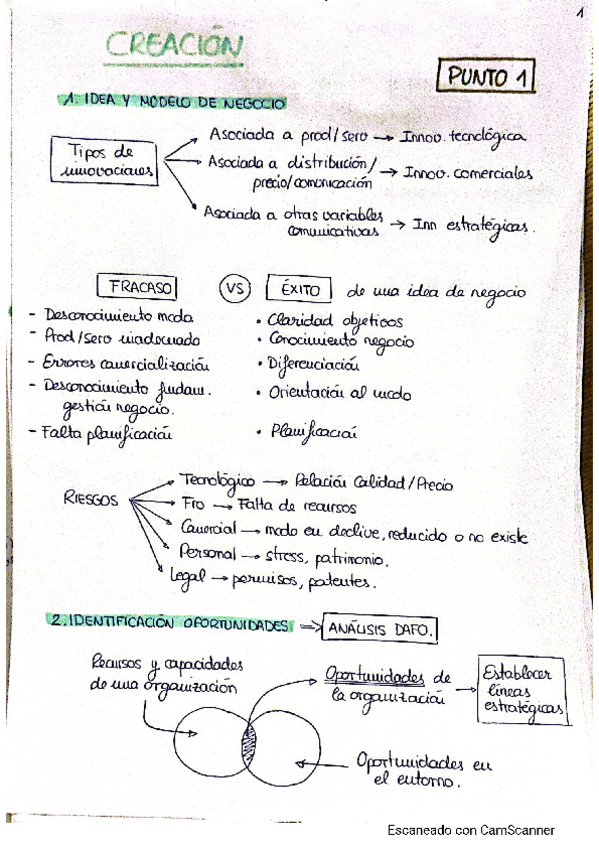 1
CREACIÓN
PUNTO 1
1. IDEA Y MODELO DE NEGOCIO
Tipos de innovaciones
Asociada a prod/serv → Innov. tecnológica
Asociada a distribución/ precio/comunicación → Innov. comerciales
Asociada a otras variables comunicativas → Inn estratégicas.
FRACASO VS ÉXITO de una idea de negocio
- Desconocimiento mcdo
- Prod/serv inadecuado
- Errores comercialización
- Desconocimiento fundam. gestión negocio.
- Falta planificación
• Claridad objetivos
• Conocimiento negocio
• Diferenciación
• Orientación al mcdo
• Planificación
RIESGOS
Tecnológico → Relación Calidad/Precio
Fro → Falta de recursos
Comercial → mcdo en declive, reducido o no existe
Personal → stress, patrimonio.
Legal → permisos, patentes.
2. IDENTIFICACIÓN OPORTUNIDADES ⇒ ANÁLISIS DAFO.
Recursos y capacidades
de una organización
Oportunidades de
la organización
→ Establecer
líneas
estratégicas
Oportunidades en
el entorno.
Escaneado con CamScanner